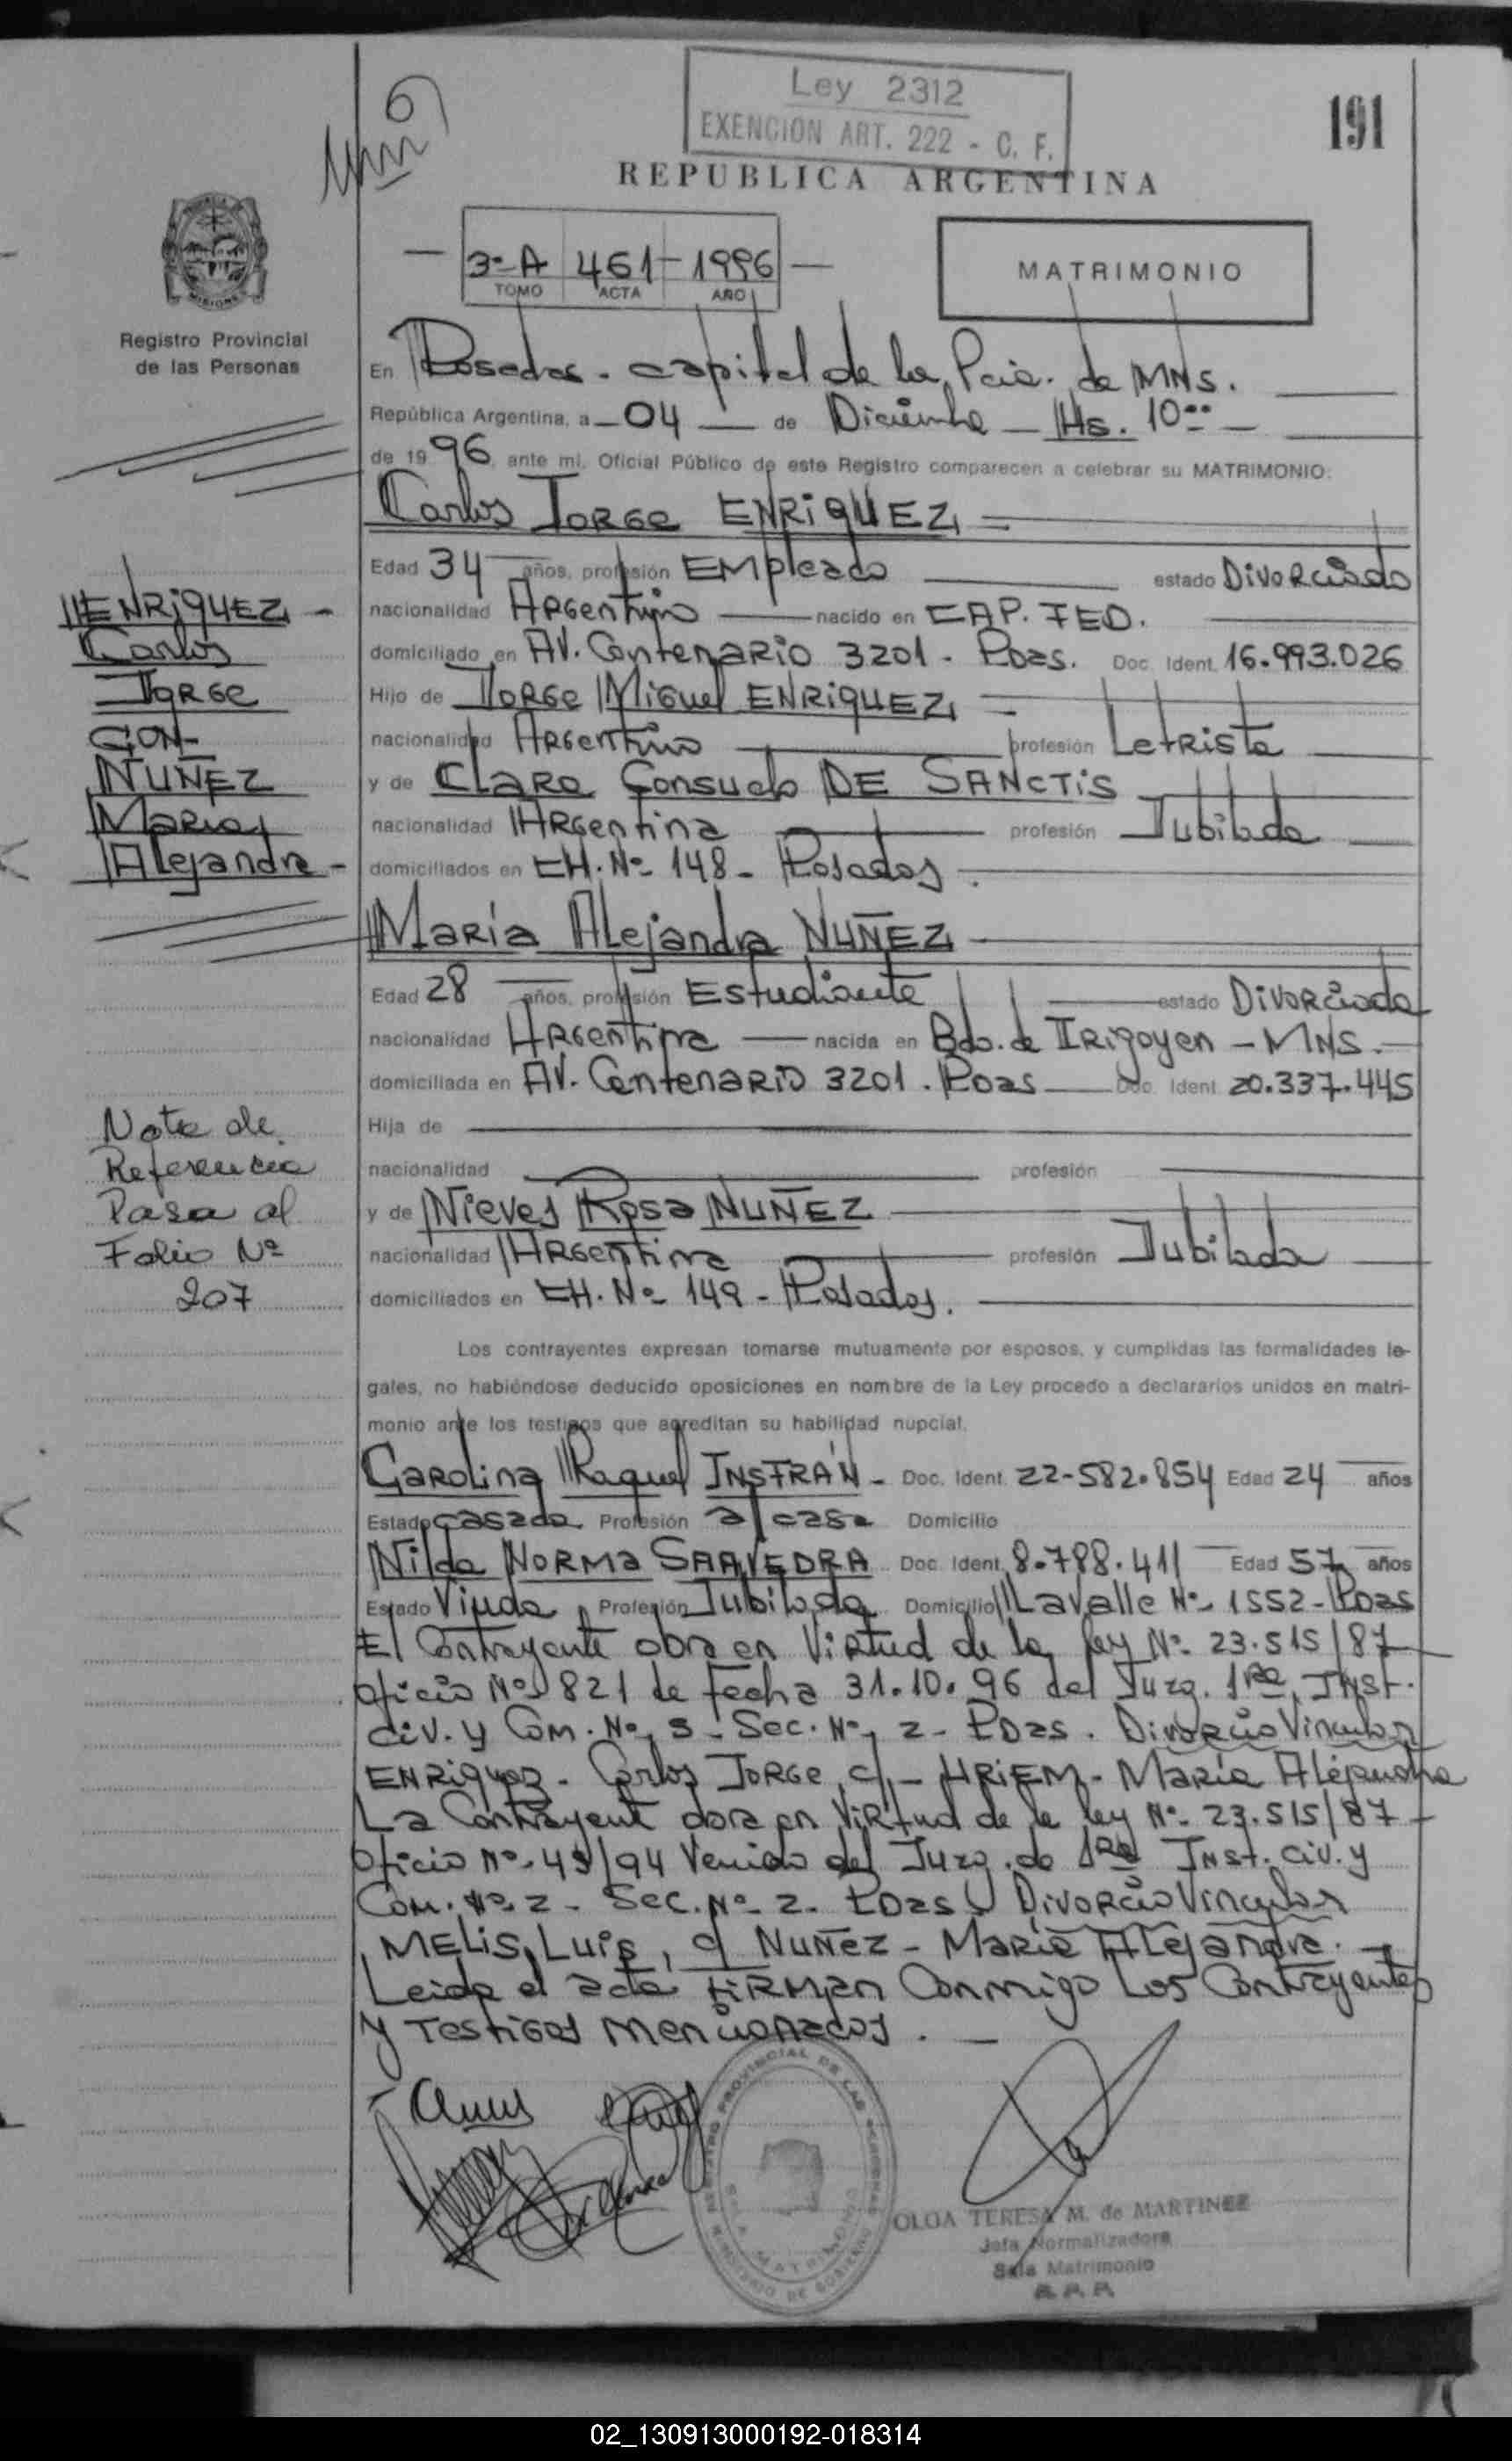 6
Ley 2312
EXENCION ART. 222 - C. F.
191
REPUBLICA ARGENTINA
3º-A 461 - 1996
TOMO ACTA AÑO
MATRIMONIO
Registro Provincial
de las Personas
En Posadas - capital de la Pcia. de MNS.
República Argentina, a 04 de Diciembre - Hs. 10:00
de 1996, ante mí, Oficial Público de este Registro comparecen a celebrar su MATRIMONIO:
Carlos JORGE ENRIQUEZ =
Edad 34 años, profesión EMpleado estado DivoRciado
nacionalidad ARGentino nacido en CAP. FED.
domiciliado en AV. CentenaRio 3201 - Pdas. Doc. Ident. 16.993.026
Hijo de JORGe Miguel ENRiQUEZ
nacionalidad ARGentino profesión LetRista
y de CLARA Consuelo DE SANCTiS
nacionalidad ARGentina profesión Jubilada
domiciliados en CH. Nº 148 - Posadas.
ENRiQUEZ -
Carlos
JORGE
CON-
NUÑEZ
MaRia
ALejandra -
MaRía ALejandra NUÑEZ
Edad 28 años, profesión Estudiante estado DivoRciada
nacionalidad ARGentina nacida en Bdo. de IRigoyen - MNS.
domiciliada en AV. CentenaRio 3201. Pdas Doc. Ident. 20.337.445
Hija de
nacionalidad profesión
y de Nieves Rosa NUÑEZ
nacionalidad ARGentina profesión Jubilada
domiciliados en CH. Nº 149 - Posadas.
Nota de
Referencia
Pasa al
Folio Nº
207
Los contrayentes expresan tomarse mutuamente por esposos, y cumplidas las formalidades le-
gales, no habiéndose deducido oposiciones en nombre de la Ley procedo a declararlos unidos en matri-
monio ante los testigos que acreditan su habilidad nupcial.
CaRoLina Raquel INSFRÁN - Doc. Ident. 22-582.854 Edad 24 años
Estado casada Profesión a/casa Domicilio
Nilda NORMa SAAVEDRA Doc. Ident. 8.788.411 Edad 57 años
Estado Viuda Profesión Jubilada Domicilio Lavalle Nº 1552 - Pdas
El Contrayente obra en ViRtud de la ley Nº 23.515/87
Oficio Nº 821 de fecha 31.10.96 del Juzg. 1Ra. INst.
Civ. y Com. Nº 3 - Sec. Nº 2 - Pdas. DivoRcio Vincular
ENRiquez - Carlos JORGe c/ - HRiEM - MaRía ALejandra
La Contrayente obra en ViRtud de la ley Nº 23.515/87
Oficio Nº 49/94 Venido del Juzg. de 1Ra INst. Civ. y
Com. Nº 2 - Sec. Nº 2 - Pdas DivoRcio Vincular
MELiS, Luis, c/ NUÑEZ - MaRia ALejandra.
Leida el acta FiRMan Conmigo Los Contrayentes
y TestiGos Mencionados.
REGISTRO PROVINCIAL DE LAS PERSONAS
SALA MATRIMONIO
MINISTERIO DE GOBIERNO
OLGA TERESA M. de MARTINEZ
Jefa Normalizadora
Sala Matrimonio
R. P. P.
02_130913000192-018314